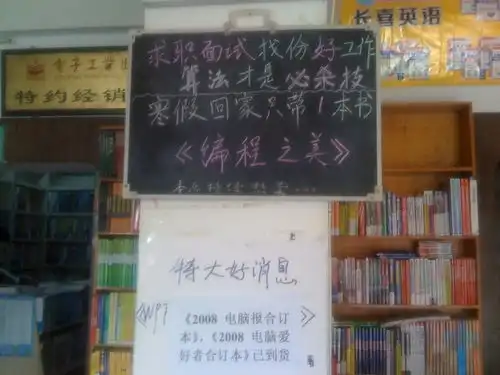 长喜英语
电子工业出
特约经销
求职面试找份好工作
算法才是必杀技
寒假回家只带1本书
《编程之美》
特大好消息
《2008 电脑报合订
本》，《2008 电脑爱
好者合订本》已到货